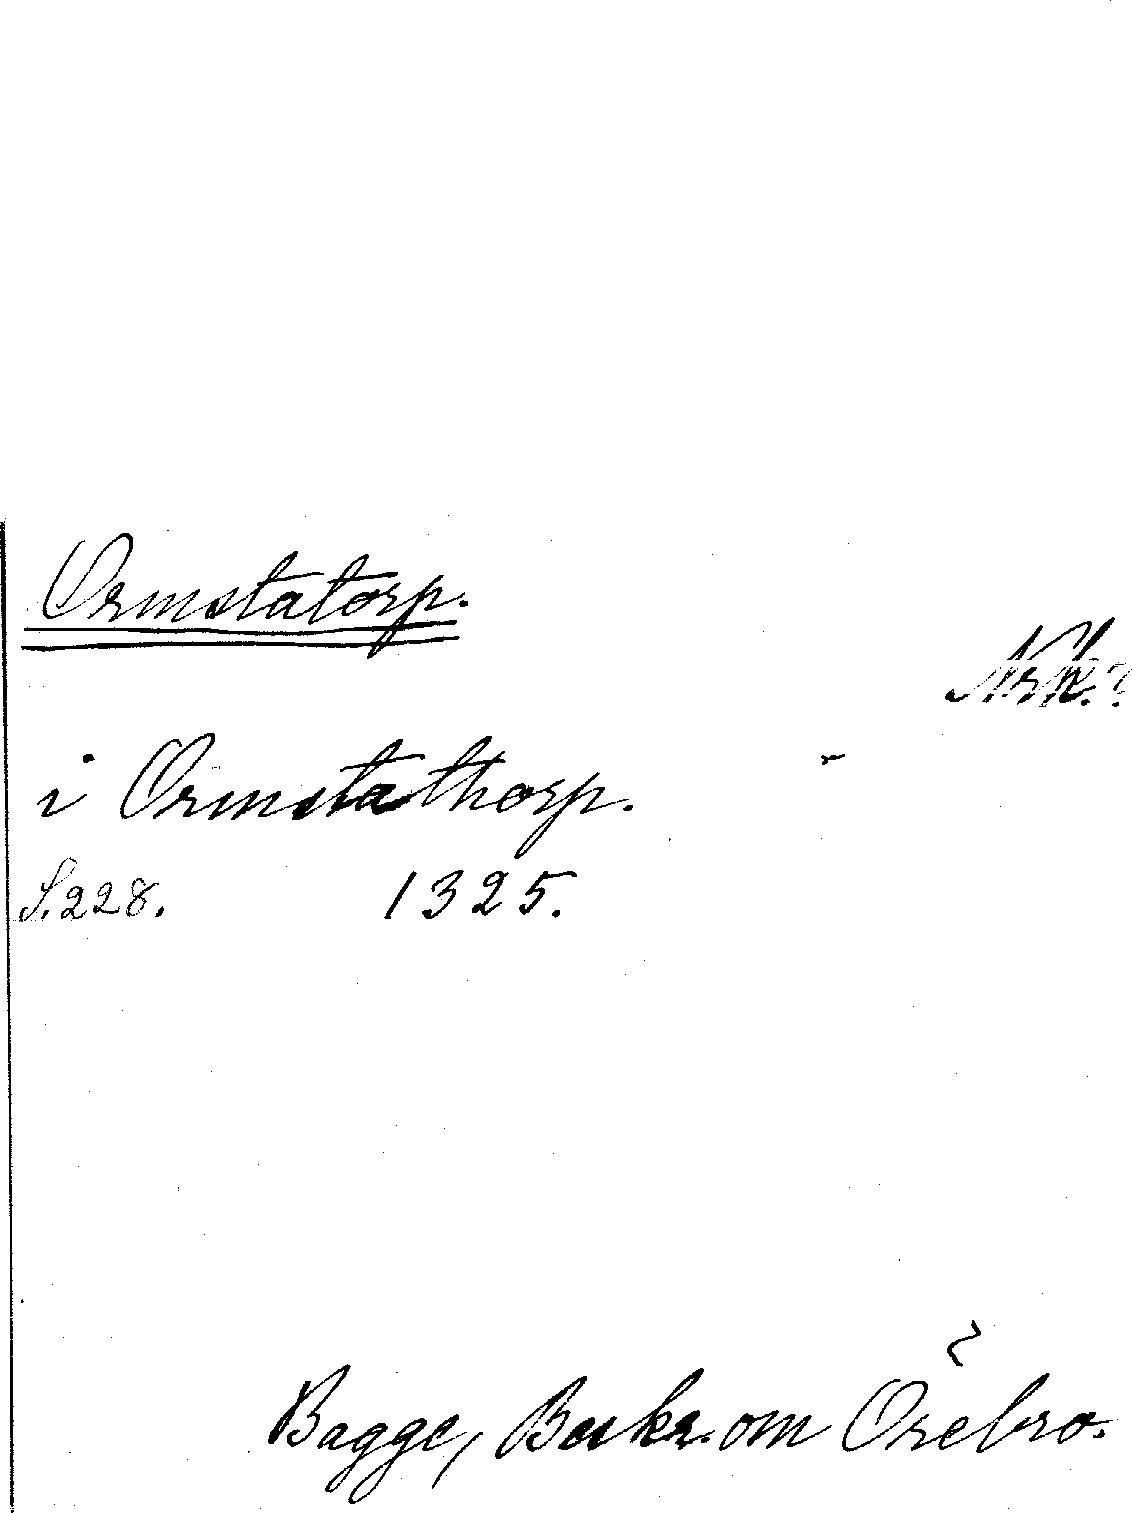 Ormstatorp.
Nrk.?
i Ormstathorp.
S. 228. 1325.
Bagge, Beskr. om Örebro.